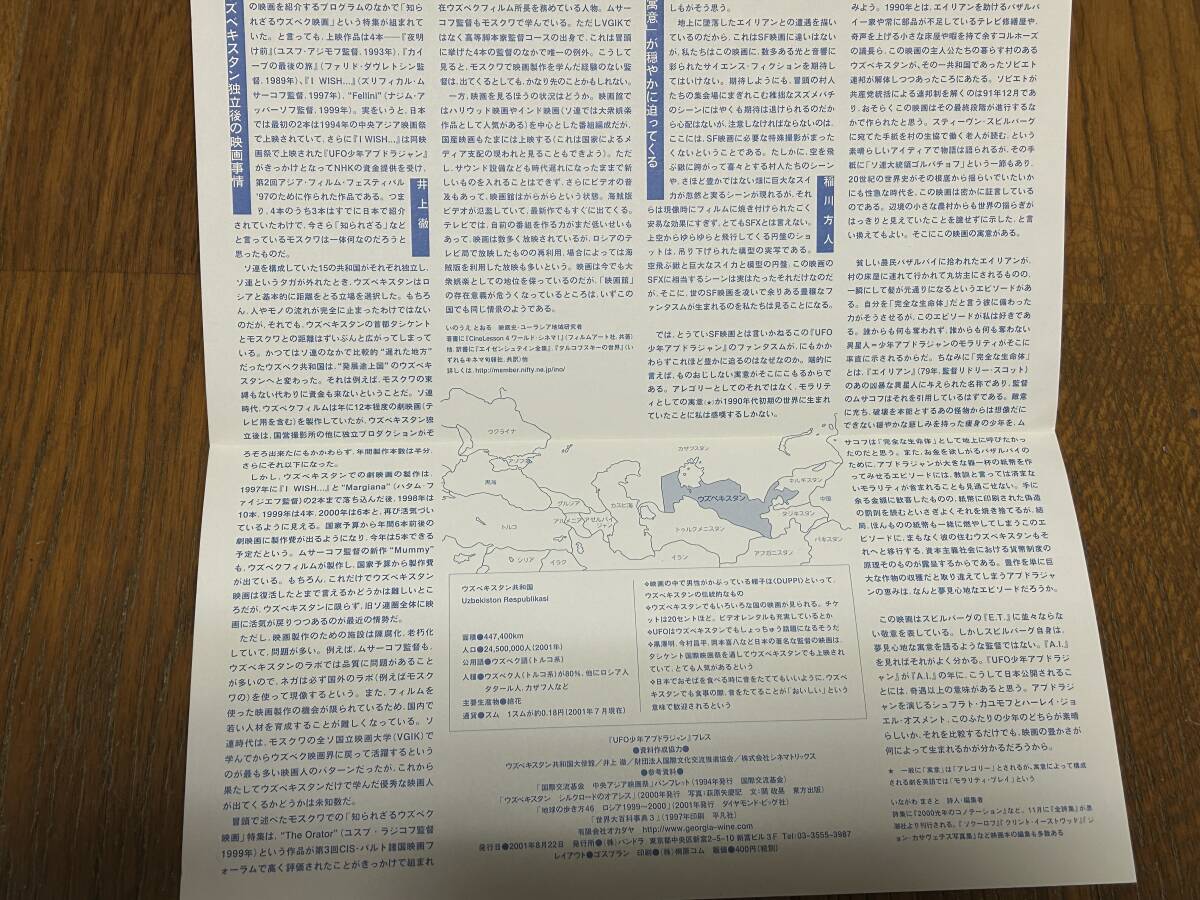 ズベキスタン独立後の映画事情
井上 徹
の映画を紹介するプログラムのなかで「知ら
れざるウズベク映画」という特集が組まれて
いた。と言っても、上映作品は4本――『夜明
け前』（ユスフ・アジモフ監督、1993年）、『カイ
ープの最後の旅』（ファリド・ダヴレトシン監
督、1989年）、『I WISH...』（ズリフィカル・ム
サーコフ監督、1997年）、“Fellini”（ナジム・ア
ッバーソフ監督、1999年）。実をいうと、日本
では最初の2本は1994年の中央アジア映画祭
で上映されていて、さらに『I WISH...』は同映
画祭で上映された『UFO少年アブドラジャン』
がきっかけとなってNHKの資金提供を受け、
第2回アジア・フィルム・フェスティバル
'97のために作られた作品である。つま
り、4本のうち3本はすでに日本で紹介
されていたわけで、今さら「知られざる」など
と言っているモスクワは一体何なのだろうと
思ったものだ。
ソ連を構成していた15の共和国がそれぞれ独立し、
ソ連というタガが外れたとき、ウズベキスタンはロ
シアと基本的に距離をとる立場を選択した。もちろ
ん、人やモノの流れが完全に止まったわけではない
のだが、それでも、ウズベキスタンの首都タシケント
とモスクワとの距離はずいぶんと広がってしまってい
る。かつてはソ連のなかで比較的“遅れた地方”
だったウズベク共和国は、“発展途上国”のウズベ
キスタンへと変わった。それは例えば、モスクワの束
縛もない代わりに資金も来ないということだ。ソ連
時代、ウズベクフィルムは年に12本程度の劇映画（テ
レビ用を含む）を製作していたが、ウズベキスタン独
立後は、国営撮影所の他に独立プロダクションがぞ
ろぞろ出来たにもかかわらず、年間製作本数は半分、
さらにそれ以下になった。
しかし、ウズベキスタンでの劇映画の製作は、
1997年に『I WISH...』と“Margiana”（ハタム・フ
ァイジエフ監督）の2本まで落ち込んだ後、1998年は
10本、1999年は4本、2000年は6本と、再び活気づい
ているように見える。国家予算から年間6本前後の
劇映画に製作費が出るようになり、今年は5本できる
予定だという。ムサーコフ監督の新作“Mummy”
も、ウズベクフィルムが製作し、国家予算から製作費
が出ている。もちろん、これだけでウズベキスタン
映画は復活したとまで言えるかどうかは難しいとこ
ろだが、ウズベキスタンに限らず、旧ソ連圏全体に映
画に活気が戻りつつあるのが最近の情勢だ。
ただし、映画製作のための施設は陳腐化、老朽化
していて、問題が多い。例えば、ムサーコフ監督も、
ウズベキスタンのラボでは品質に問題があること
が多いので、ネガは必ず国外のラボ（例えばモスク
ワの）を使って現像するという。また、フィルムを
使った映画製作の機会が限られているため、国内で
若い人材を育成することが難しくなっている。ソ
連時代は、モスクワの全ソ国立映画大学（VGIK）で
学んでからウズベク映画界に戻って活躍するという
のが最も多い映画人のパターンだったが、これから
果たしてウズベキスタンだけで学んだ優秀な映画人
が出てくるかどうかは未知数だ。
冒頭で述べたモスクワでの「知られざるウズベク
映画」特集は、“The Orator”（ユスプ・ラジコフ監督
1999年）という作品が第3回CIS・バルト諸国映画フ
ォーラムで高く評価されたことがきっかけで組まれ
在ウズベクフィルム所長を務めている人物。ムサー
コフ監督もモスクワで学んでいる。ただしVGIKで
はなく高等脚本家監督コースの出身で、これは冒頭
に挙げた4本の監督のなかで唯一の例外。こうして
見ると、モスクワで映画製作を学んだ経験のない監
督は、出てくるとしても、かなり先のことかもしれない。
一方、映画を見るほうの状況はどうか。映画館で
はハリウッド映画やインド映画（ソ連では大衆娯楽
作品として人気がある）を中心とした番組編成だが、
国産映画もたまには上映する（これは国家によるメ
ディア支配の現われと見ることもできよう）。ただ
し、サウンド設備なども時代遅れになったままで新
しいものを入れることはできず、さらにビデオの普
及もあって、映画館はがらがらという状態。海賊版
ビデオが氾濫していて、最新作でもすぐに出てくる。
テレビでは、自前の番組を作る力がまだ低いせいも
あって、映画は数多く放映されているが、ロシアのテ
レビ局で放映したものの再利用、場合によっては海
賊版を利用した放映も多いという。映画は今でも大
衆娯楽としての地位を保っているのだが、「映画館」
の存在意義が危うくなっているところは、いずこの
国でも同じ情景のようである。
いのうえ とおる 映画史・ユーラシア地域研究者
著書に『CineLesson 4 ワールド・シネマ！』（フィルムアート社、共著）
他、訳書に『エイゼンシュテイン全集』、『タルコフスキーの世界』（い
ずれもキネマ旬報社、共訳）他
詳しくは、http://member.nifty.ne.jp/ino/
寓意」が穏やかに迫ってくる
稲川方人
しもがそう思う。
地上に墜落したエイリアンとの遭遇を描い
ているのだから、これはSF映画に違いはない
が、私たちはこの映画に、数多ある光と音響に
彩られたサイエンス・フィクションを期待し
てはいけない。期待しようにも、冒頭の村人
たちの集会場にまぎれこむ稚拙なスズメバチ
のシーンにはやくも期待は退けられるのだか
ら心配はないが、注意しなければならないのは、
ここには、SF映画に必要な特殊撮影がまった
くないということである。たしかに、空を飛
ぶ鍬に跨がって喜々とする村人たちのシーン
や、さほど豊かではない畑に巨大なスイ
カが忽然と実るシーンが現れるが、それ
らは現像時にフィルムに焼き付けられたごく
安易な効果にすぎず、とてもSFXとは言えない。
上空からゆらゆらと飛行してくる円盤のショ
ットは、吊り下げられた模型の実写である。
空飛ぶ鍬と巨大なスイカと模型の円盤、この映画の
SFXに相当するシーンは実はたったそれだけなのだ
が、そこに、世のSF映画を凌いで余りある豊穣なフ
ァンタスムが生まれるのを私たちは見ることになる。
では、とうていSF映画とは言いかねるこの『UFO
少年アブドラジャン』のファンタスムが、にもかか
わらずこれほど豊かに迫るのはなぜなのか。端的に
言えば、ものおじしない寓意がそこにこもるからで
ある。アレゴリーとしてのそれではなく、モラリテ
ィとしての寓意（★）が1990年代初期の世界に生まれ
ていたことに私は感嘆するしかない。
みよう。1990年とは、エイリアンを助けるバザルバ
イ一家や常に部品が不足しているテレビ修繕屋や、
奇声を上げる小さな床屋や暇を持て余すコルホーズ
の議長ら、この映画の主人公たちの暮らす村のある
ウズベキスタンが、その一共和国であったソビエト
連邦が解体しつつあったころにあたる。ソビエトが
共産党統括による連邦制を解くのは91年12月であ
り、おそらくこの映画はその最終段階が進行するな
かで作られたと思う。スティーヴン・スピルバーグ
に宛てた手紙を村の生協で働く老人が読む、という
素晴らしいアイディアで物語は語られるが、その手
紙に「ソ連大統領ゴルバチョフ」という一節もあり、
20世紀の世界史がその根底から揺らいでいたいか
にも性急な時代を、この映画は密かに証言している
のである。辺境の小さな農村からも世界の揺らぎが
はっきりと見えていたことを臆せずに示した、と言
い換えてもよい。そこにこの映画の寓意がある。
貧しい農民バザルバイに拾われたエイリアンが、
村の床屋に連れて行かれて丸坊主にされるものの、
一瞬にして髪が元通りになるというエピソードがあ
る。自分を「完全な生命体」だと言う彼に備わった
力がそうさせるが、このエピソードが私は好きであ
る。誰からも何も奪われず、誰からも何も奪わない
異星人＝少年アブドラジャンのモラリティがそこに
率直に示されるからだ。ちなみに「完全な生命体」
とは、『エイリアン』（79年、監督リドリー・スコット）
のあの凶暴な異星人に与えられた名称であり、監督
のムサコフはそれを引用しているはずである。敵意
に充ち、破壊を本能とするあの怪物からは想像だに
できない穏やかな慈しみを持った痩身の少年を、ム
サコフは「完全な生命体」として地上に呼びたかっ
たのだと思う。また、お金を欲しがるバザルバイの
ために、アブドラジャンが大きな籠一杯の紙幣を作
ってみせるエピソードには、教訓と言っては済まな
いモラリティが含まれることも見過ごせない。手に
余る金額に歓喜したものの、紙幣に印刷された偽造
の罰則を読むといさぎよくそれを焼き捨てるが、結
局、ほんものの紙幣も一緒に燃やしてしまうこのエ
ピソードに、まもなく彼の住むウズベキスタンもそ
れへと移行する、資本主義社会における貨幣制度の
原理そのものが露呈するからである。豊作を単に巨
大な作物の収穫だと取り違えてしまうアブドラジャ
ンの恵みは、なんと夢見心地なエピソードだろうか。
この映画はスピルバーグの『E.T.』に並々ならな
い敬意を表している。しかしスピルバーグ自身は、
夢見心地な寓意を語るような監督ではない。『A.I.』
を見ればそれがよく分かる。『UFO少年アブドラジ
ャン』が『A.I.』の年に、こうして日本公開されるこ
とには、奇遇以上の意味があると思う。アブドラジ
ャンを演じるシュフラト・カユモフとハーレイ・ジョ
エル・オスメント、このふたりの少年のどちらが素晴
らしいか、それを比較するだけでも、映画の豊かさが
何によって生まれるかが分かるだろうから。
★ 一般に「寓意」は「アレゴリー」とされるが、寓意によって構成
される劇を英語では「モラリティ・プレイ」という
いながわ まさと 詩人・編集者
詩集に『2000光年のコノテーション』など。11月に『全詩集』が思
潮社より刊行される。『ソクーロフ』『クリント・イーストウッド』『ジ
ョン・カサヴェテス写真集』など映画本の編集も多数ある
ウクライナ
アゾフ海
黒海
グルジア
アルメニア
アゼルバイ
ジャン
トルコ
シリア
イラク
カスピ海
カザフスタン
ウズベキスタン
キルギスタン
中国
タジキスタン
トゥルクメニスタン
イラン
アフガニスタン
パキスタン
ウズベキスタン共和国
Uzbekiston Respublikasi
面積●447,400km
人口●24,500,000人（2001年）
公用語●ウズベク語（トルコ系）
人種●ウズベク人（トルコ系）が80％、他にロシア人
タタール人、カザフ人など
主要生産物●綿花
通貨●スム 1スムが約0.18円（2001年7月現在）
❖映画の中で男性がかぶっている帽子は〈DUPPI〉といって、
ウズベキスタンの伝統的なもの
❖ウズベキスタンでもいろいろな国の映画が見られる。チケ
ットは20セントほど。ビデオレンタルも充実しているとか
❖UFOはウズベキスタンでもしょっちゅう話題になるそうだ
❖黒澤明、今村昌平、岡本喜八など日本の著名な監督の映画は、
タシケント国際映画祭を通してウズベキスタンでも上映され
ていて、とても人気があるという
❖日本でおそばを食べる時に音をたててもいいように、ウズベ
キスタンでも食事の際、音をたてることが「おいしい」という
意味で歓迎されるという
『UFO少年アブドラジャン』プレス
●資料作成協力●
ウズベキスタン共和国大使館／井上 徹／財団法人国際文化交流推進協会／株式会社シネマトリックス
●参考資料●
「国際交流基金 中央アジア映画祭」パンフレット（1994年発行 国際交流基金）
「ウズベキスタン シルクロードのオアシス」（2000年発行 写真：萩原矢慶記 文：関 治晃 東方出版）
「地球の歩き方46 ロシア1999～2000」（2001年発行 ダイヤモンド・ビッグ社）
「世界大百科事典3」（1997年印刷 平凡社）
有限会社オカダヤ http://www.georgia-wine.com
発行日●2001年8月22日 発行所●（株）パンドラ 東京都中央区新富2-5-10 新富ビル3F Tel：03-3555-3987
レイアウト●ゴスプラン 印刷●（株）桐原コム 頒価●400円（税別）